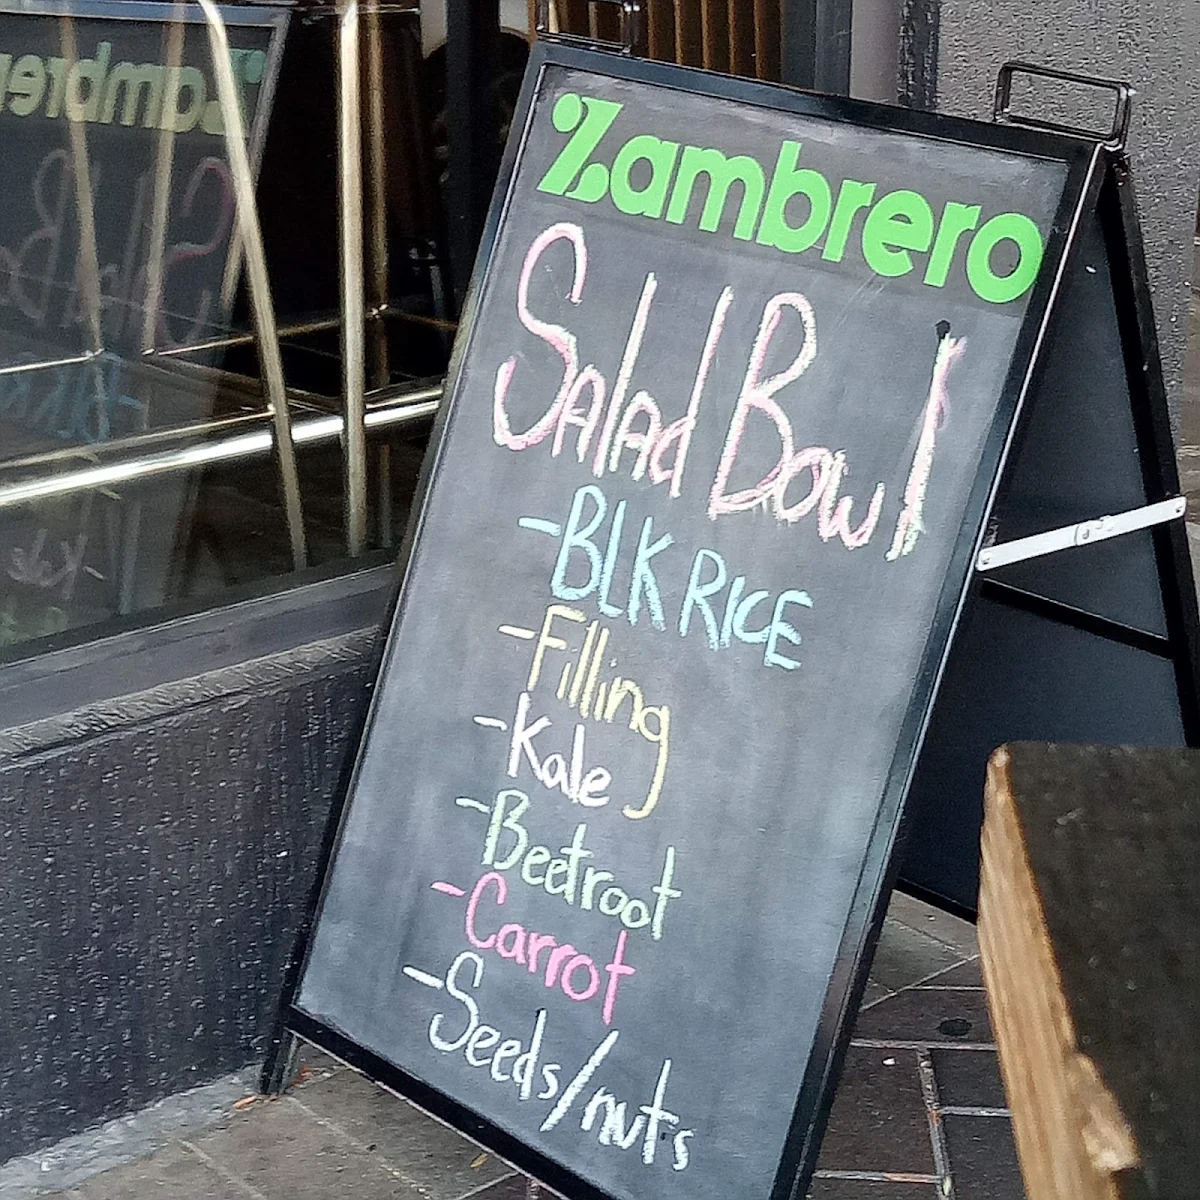 Zambrero
Salad Bowl
-BLK RICE
-Filling
-Kale
-Beetroot
-Carrot
-Seeds/nuts